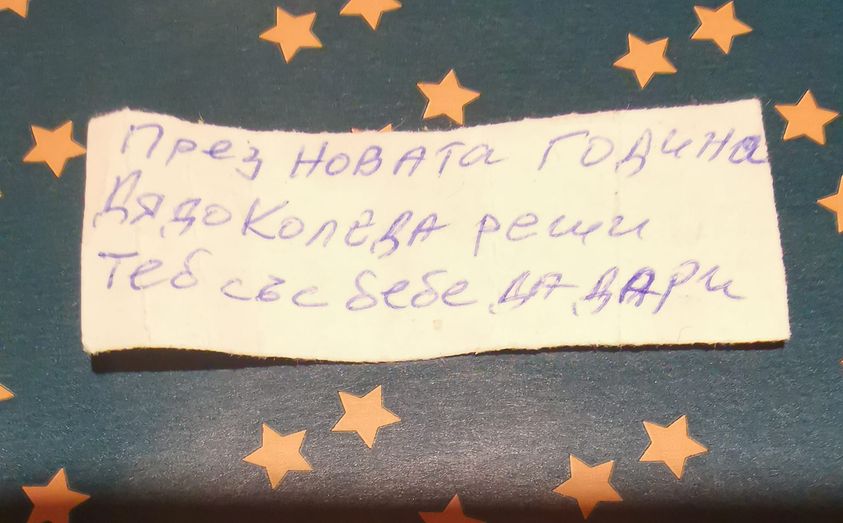 През НОВАТа ГОДИНа
ДЯДО КОЛЕДА реши
Теб със бебе ДА ДАРИ